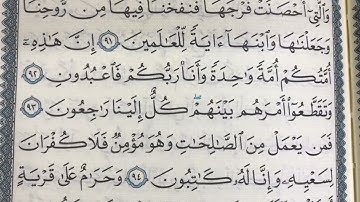 وَٱلَّتِىٓ أَحْصَنَتْ فَرْجَهَا فَنَفَخْنَا فِيهَا مِن رُّوحِنَا
وَجَعَلْنَٰهَا وَٱبْنَهَآ ءَايَةً لِّلْعَٰلَمِينَ ٩١ إِنَّ هَٰذِهِۦٓ
أُمَّتُكُمْ أُمَّةً وَٰحِدَةً وَأَنَا۠ رَبُّكُمْ فَٱعْبُدُونِ ٩٢
وَتَقَطَّعُوٓا۟ أَمْرَهُم بَيْنَهُمْ ۖ كُلٌّ إِلَيْنَا رَٰجِعُونَ ٩٣
فَمَن يَعْمَلْ مِنَ ٱلصَّٰلِحَٰتِ وَهُوَ مُؤْمِنٌ فَلَا كُفْرَانَ
لِسَعْيِهِۦ وَإِنَّا لَهُۥ كَٰتِبُونَ ٩٤ وَحَرَٰمٌ عَلَىٰ قَرْيَةٍ